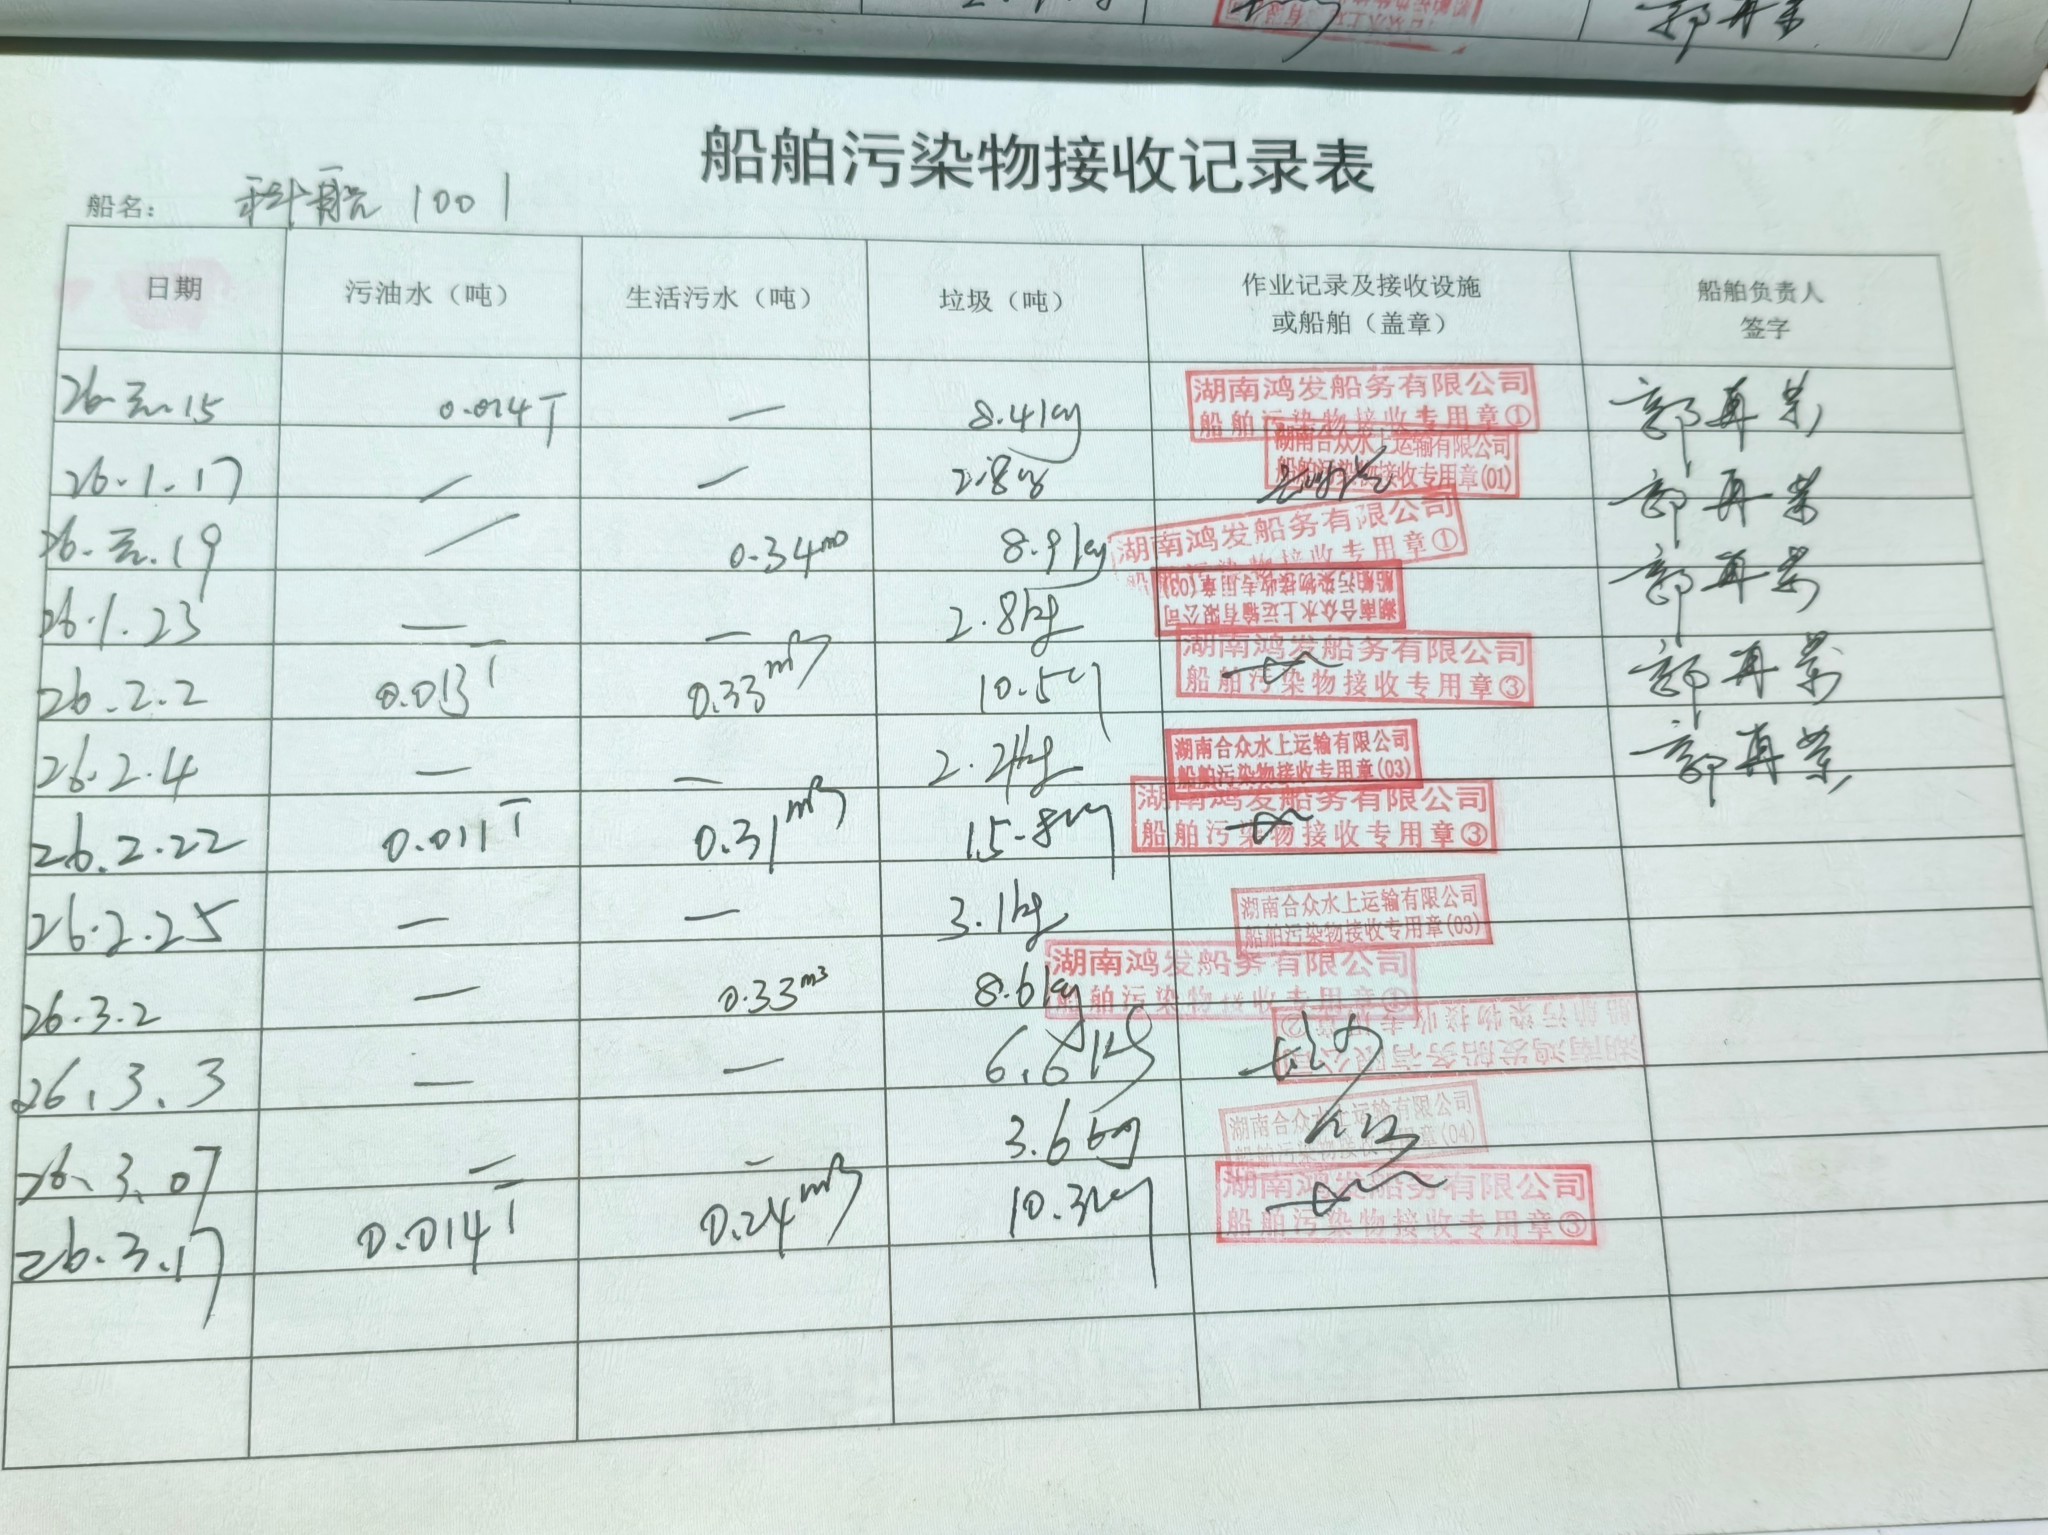 郭再荣
船舶污染物接收记录表
船名: 科航 1001
日期 污油水（吨） 生活污水（吨） 垃圾（吨） 作业记录及接收设施或船舶（盖章） 船舶负责人签字
26.元.15 0.014T — 8.4kg 湖南鸿发船务有限公司 船舶污染物接收专用章① 郭再荣
26.1.17 — — 2.8kg 湖南合众水上运输有限公司 船舶污染物接收专用章(01) 郭再荣
26.元.19 — 0.34m³ 8.9kg 湖南鸿发船务有限公司 船舶污染物接收专用章① 郭再荣
26.1.23 — — 2.8kg 湖南合众水上运输有限公司 船舶污染物接收专用章(03) 郭再荣
26.2.2 0.013T 0.33m³ 10.5kg 湖南鸿发船务有限公司 船舶污染物接收专用章③ 郭再荣
26.2.4 — — 2.2kg 湖南合众水上运输有限公司 船舶污染物接收专用章(03) 郭再荣
26.2.22 0.011T 0.31m³ 15.8kg 湖南鸿发船务有限公司 船舶污染物接收专用章③
26.2.25 — — 3.1kg 湖南合众水上运输有限公司 船舶污染物接收专用章(03)
26.3.2 — 0.33m³ 8.6kg 湖南鸿发船务有限公司 船舶污染物接收专用章①
26.3.3 — — 6.6kg 湖南鸿发船务有限公司 船舶污染物接收专用章②
26.3.07 — — 3.6kg 湖南合众水上运输有限公司 船舶污染物接收专用章(04)
26.3.17 0.014T 0.24m³ 10.3kg 湖南鸿发船务有限公司 船舶污染物接收专用章③